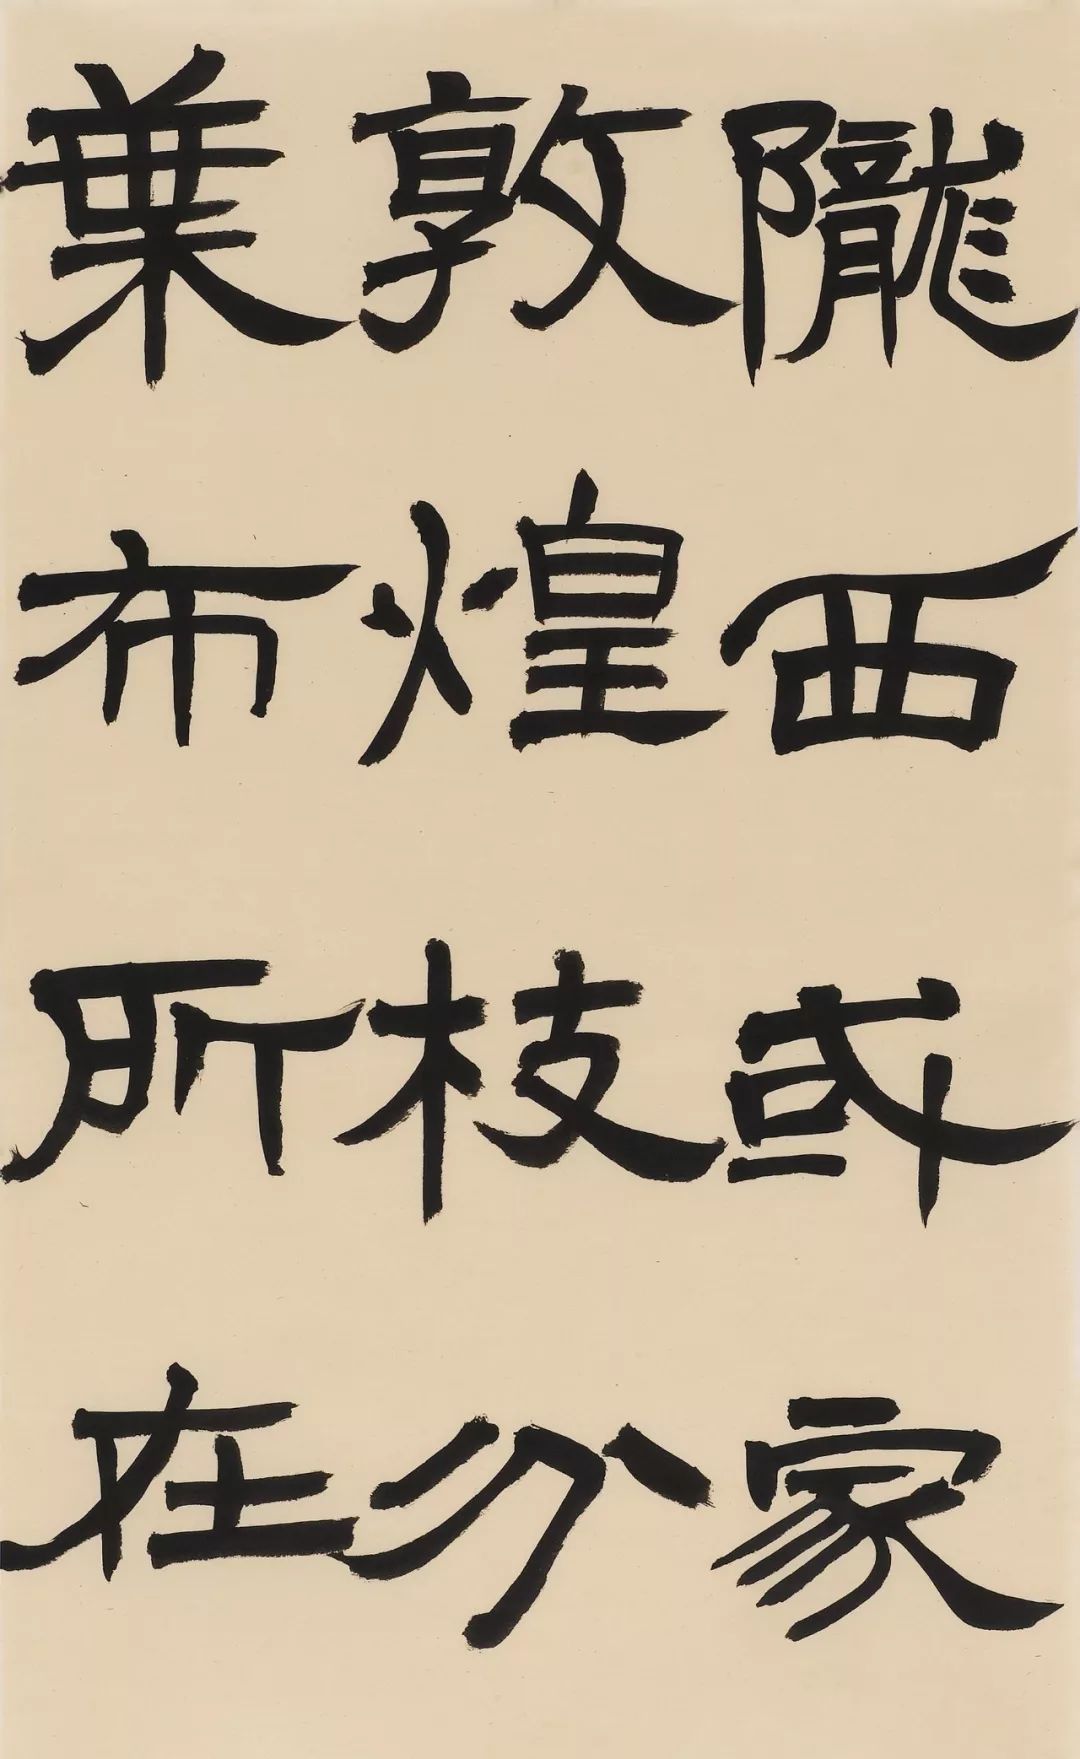 隴西或家
敦煌枝分
葉布所在